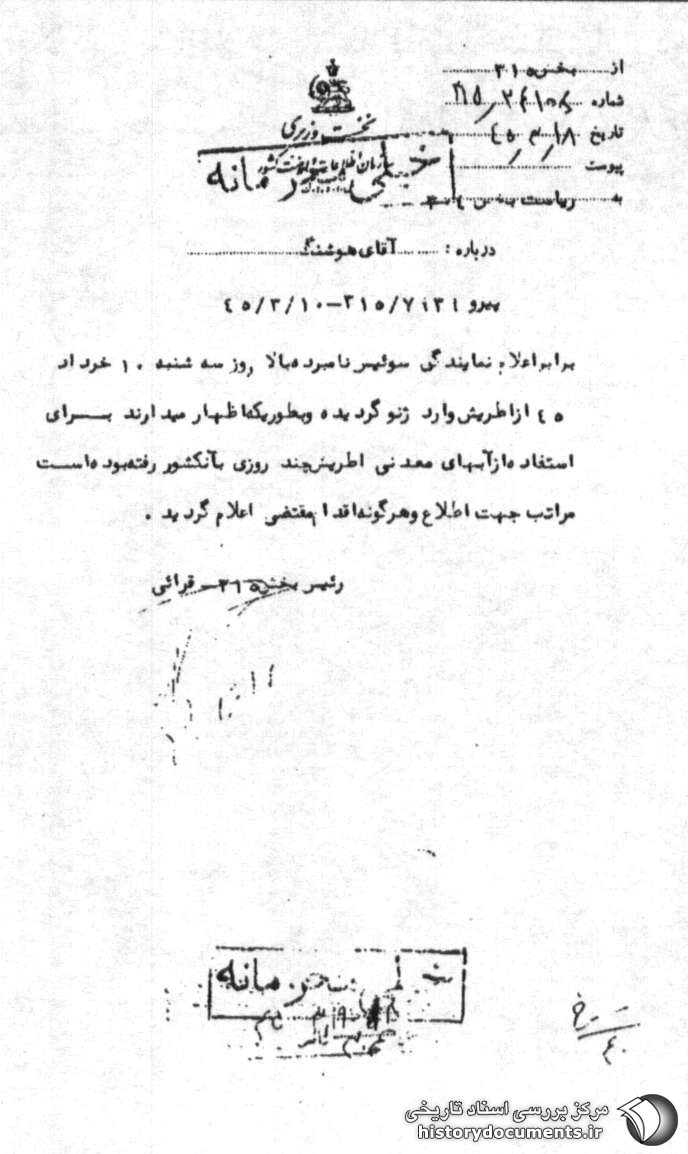 از بخش ۳۱۵
شماره
تاریخ ۴۵/۳/۱۸
پیوست
به ریاست بخش
نخست وزیری
سازمان اطلاعات و امنیت کشور
خیلی محرمانه
درباره : آقای هوشنگ
پیرو
۴۵/۳/۱۰-۳۱۵/
برابر اعلام نمایندگی سوئیس نامبرده بالا روز سه شنبه ۱۰ خرداد
۴۵ از اطریش وارد ژنو گردیده و بطوریکه اظهار میدارند برای
استفاده از آبهای معدنی اطریش چند روزی بآنکشور رفته بوده است
مراتب جهت اطلاع و هرگونه اقدام مقتضی اعلام گردید .
رئیس بخش ۳۱۵ - قرائی
خیلی محرمانه
مرکز بررسی اسناد تاریخی
historydocuments.ir